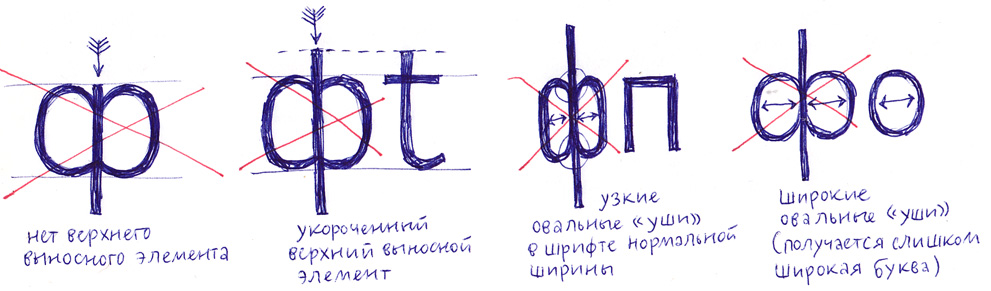 ф
фt
фп
фо
нет верхнего
выносного элемента
укороченный
верхний выносной
элемент
узкие
овальные «уши»
в шрифте нормальной
ширины
широкие
овальные «уши»
(получается слишком
широкая буква)